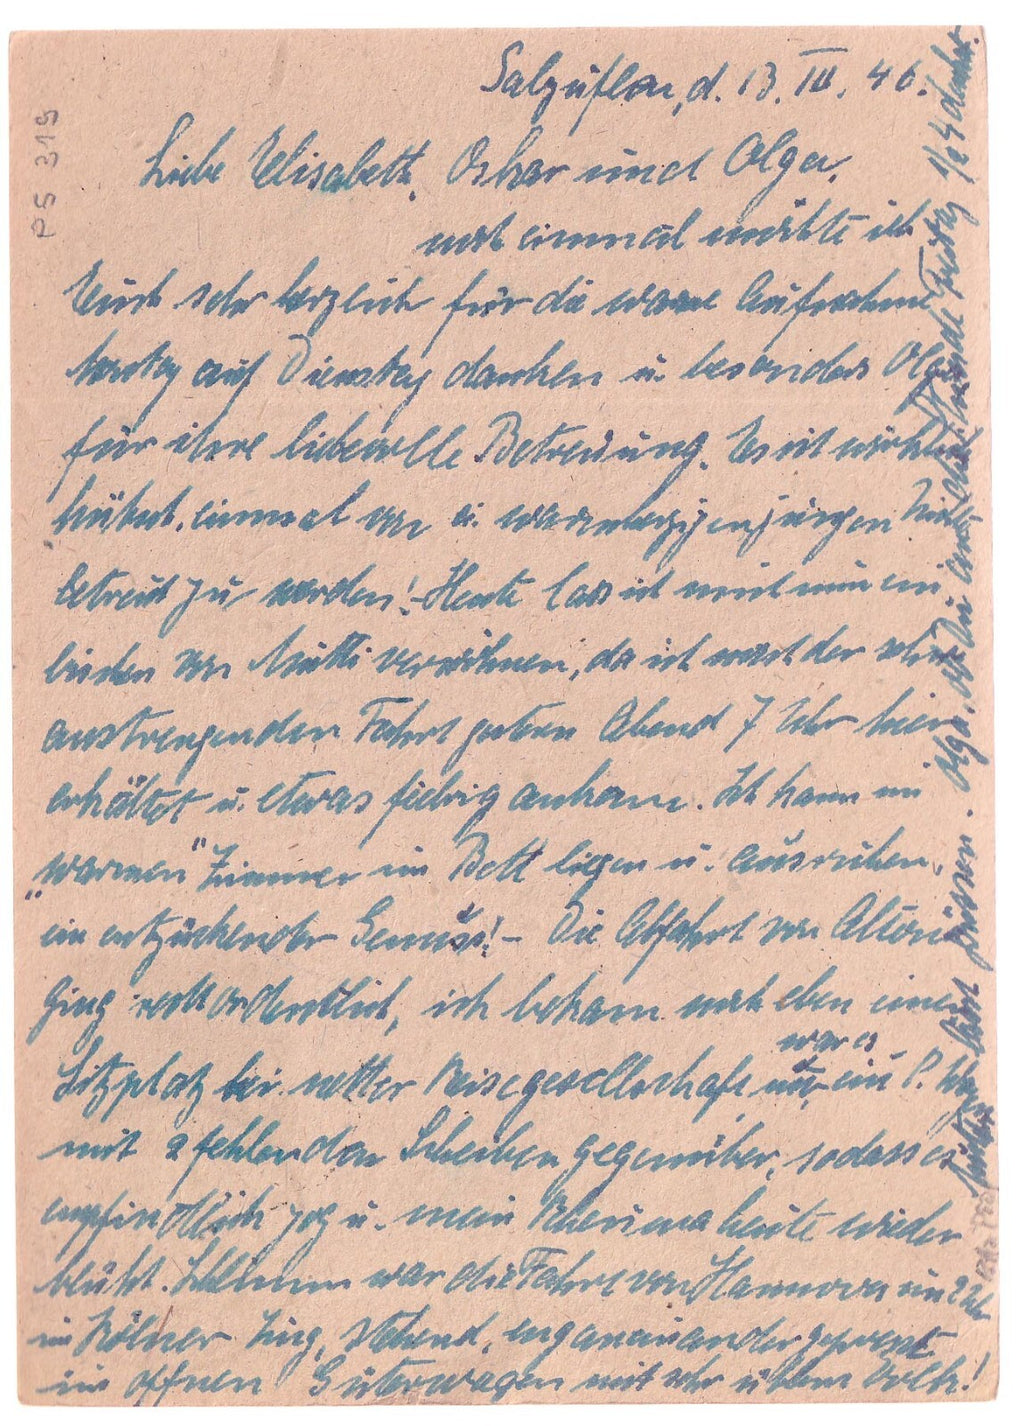 Salzuflen, d. 13. III. 46.
Liebe Elisabeth, Oskar und Olga,
noch einmal möchte ich
Euch sehr herzlich für die warme Aufnahme
Montag auf Dienstag danken u. besonders Olga
für ihre liebevolle Betreuung. Es ist wirklich
hübsch, einmal von e. warmherzigen jungen
betreut zu werden! - Heute lass ich mich nun ein
bischen von Mutti verwöhnen, da ich nach der sehr
anstrengenden Fahrt gestern Abend 7 Uhr hier
erkältet u. etwas fiebrig ankam. Ich kann im
"warmen" Zimmer im Bett liegen u. ausruhen -
ein entzückender Genuss! - Die Abfahrt von Altona
ging recht ordentlich, ich bekam noch eben einen
Sitzplatz bei netter Reisegesellschaft nur war es ein P. Wagen
mit 2 fehlenden Scheiben gegenüber, sodass es
empfindlich zog u. mein Rheuma heute wieder
blüht. Schlimm war die Fahrt von Hannover um 2 Uhr
im Kölner Zug, stehend, eng aneinander gepresst
im offnen Güterwagen mit sehr üblem Volk!
lässt grüssen. Olga, ob Du an Freitag 1/2 4 denkst.
PS 319